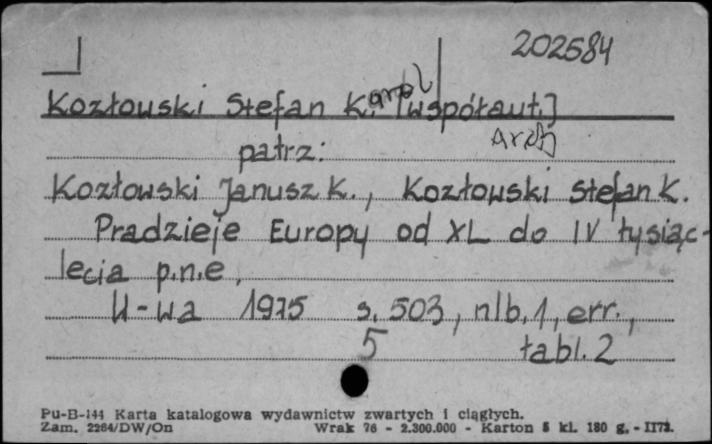 202584
Kozłowski Stefan K. [współaut.]
patrz:
Kozłowski Janusz K., Kozłowski Stefan K.
Pradzieje Europy od XL do IV tysiąc-
lecia p.n.e,
W-wa 1975 s. 503, nlb. 1, err.,
5 tabl. 2
Pu-B-144 Karta katalogowa wydawnictw zwartych i ciągłych.
Zam. 2264/DW/On Wrak 76 - 2.300.000 - Karton 5 kl. 180 g. - II73.